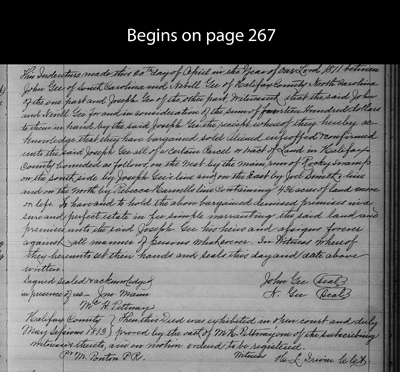 Begins on page 267
This Indenture made this 20th day of April in the Year of our Lord 1811 between
John Gee of South Carolina and Nevill Gee of Halifax County North Carolina
of the one part and Joseph Gee of the other part, Witnesseth that the said John
and Nevill Gee for and in consideration of the sum of Hundred dollars
to them in hand by the said Joseph Gee the receipt whereof they hereby ac
knowledge that they have bargained sold aliened enfeoffed & confirmed
unto the said Joseph Gee all of a certain Parcel or tract of Land in Halifax
County bounded as follows, on the West by the main run of Rocky Swamp
on the south side by Joseph Gee's line and on the East by Joel line
and on the North by Rebecca line Containing 436 acres of land more
or less. To have and to hold the above bargained demised premises in a
sure and perfect estate in fee simple warranting the said land and
premises unto the said Joseph Gee his heirs and assigns forever
against all manner of persons whatsoever. In Witness whereof
they hereunto set their hands and seals this day and date above
written.
Signed sealed & acknowledged
in presence of us Jno Mann
John Gee (Seal)
N. Gee (Seal)
Wm H Pittmay
Halifax County } Then this Deed was exhibited in open court and duly
May Sessions 1813 } proved by the oath of of the subscribing
witnesses thereto, and on motion ordered to be registered.
Pr M. Ponton P.R. Witness